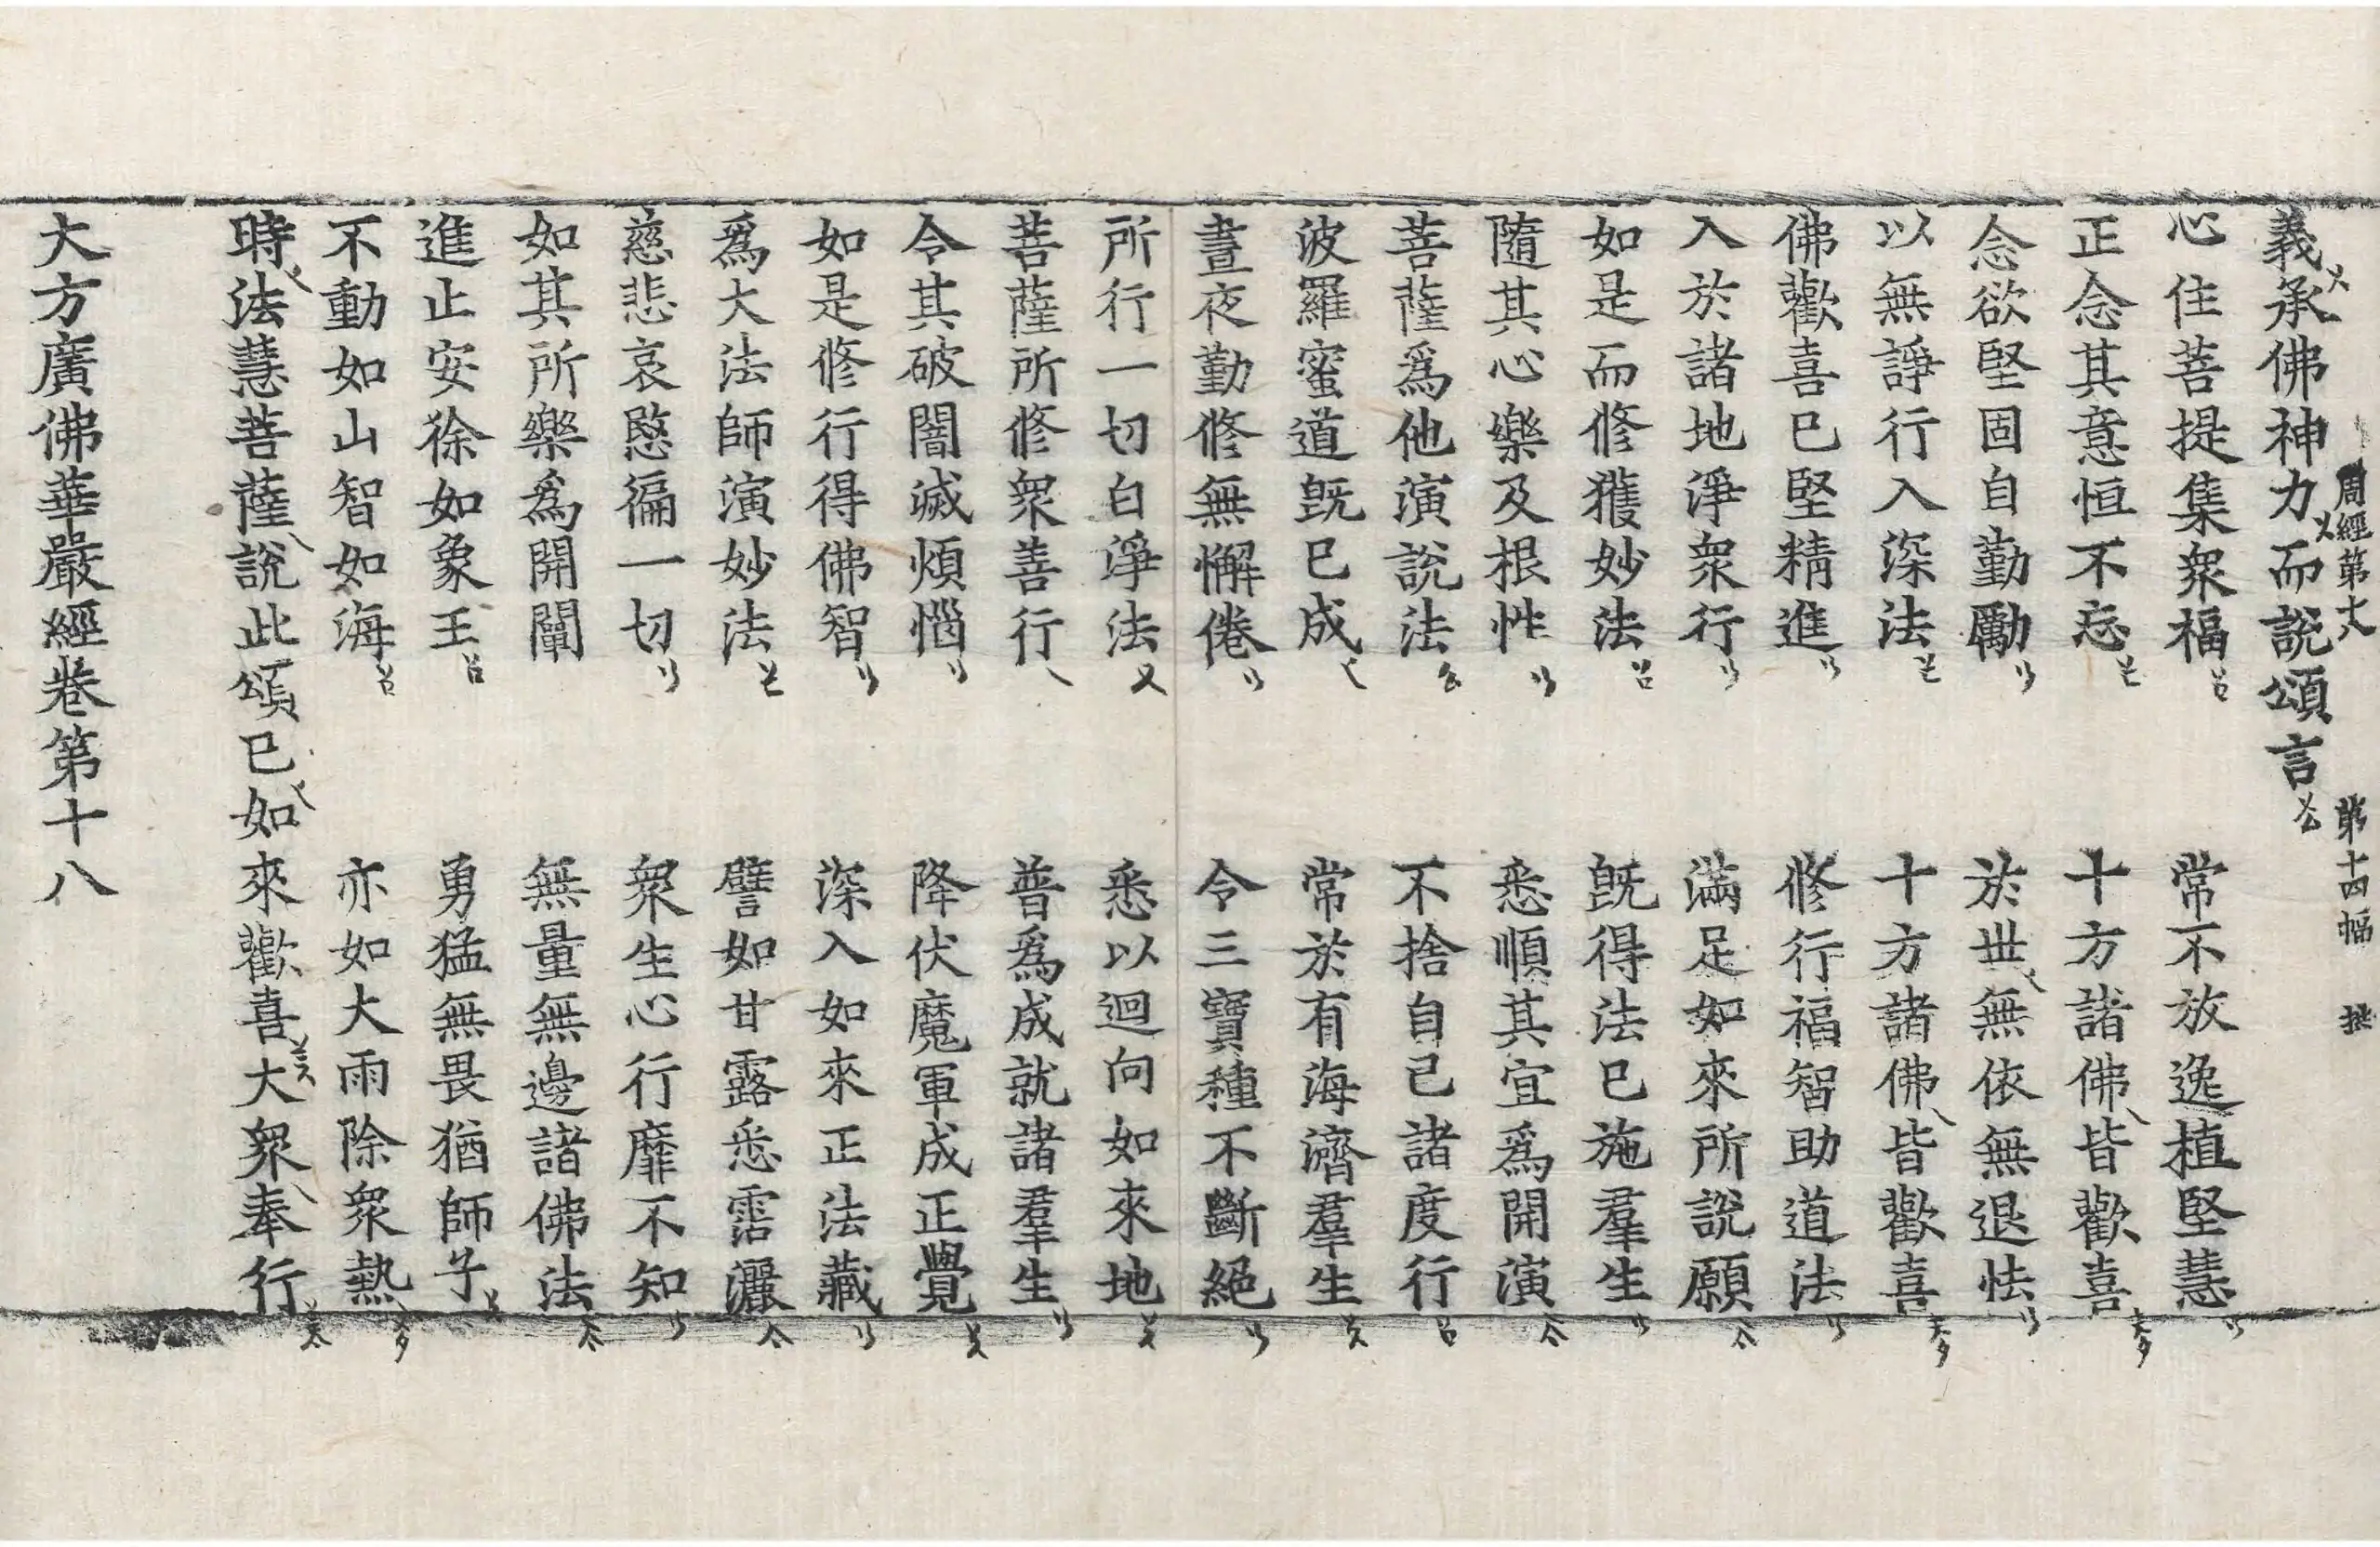 周經第十八 第十四幅
義承佛神力而說頌言
心住菩提集衆福 常不放逸植堅慧
正念其意恒不忘 十方諸佛皆歡喜
念欲堅固自勤勵 於世無依無退怯
以無諍行入深法 十方諸佛皆歡喜
佛歡喜已堅精進 修行福智助道法
入於諸地淨衆行 滿足如來所說願
如是而修獲妙法 旣得法已施羣生
隨其心樂及根性 悉順其宜爲開演
菩薩爲他演說法 不捨自己諸度行
波羅蜜道旣已成 常於有海濟羣生
晝夜勤修無懈倦 令三寶種不斷絕
所行一切白淨法 悉以迴向如來地
菩薩所修衆善行 普爲成就諸羣生
令其破闇滅煩惱 降伏魔軍成正覺
如是修行得佛智 深入如來正法藏
爲大法師演妙法 譬如甘露悉霑灑
慈悲哀愍徧一切 衆生心行靡不知
如其所樂爲開闡 無量無邊諸佛法
進止安徐如象王 勇猛無畏猶師子
不動如山智如海 亦如大雨除衆熱
時法慧菩薩說此頌已如來歡喜大衆奉行
大方廣佛華嚴經卷第十八